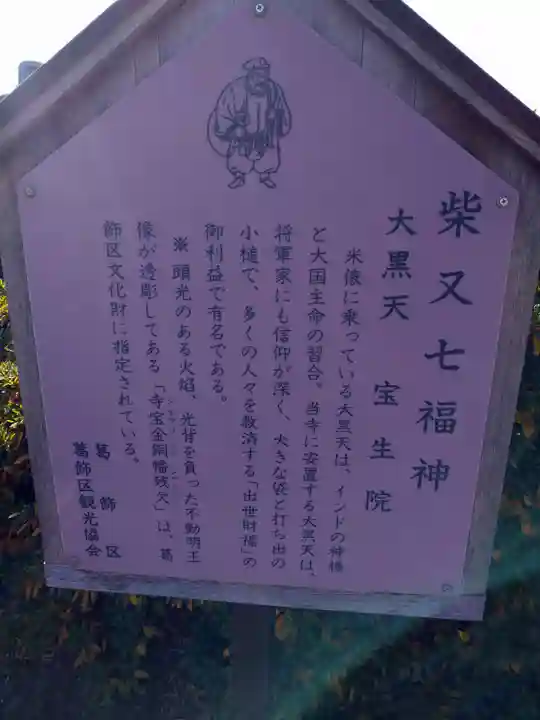 柴又七福神
大黒天　宝生院
米俵に乗っている大黒天は、インドの神様
と大国主命の習合。当寺に安置する大黒天は、
将軍家にも信仰が深く、大きな袋と打ち出の
小槌で、多くの人々を救済する「出世財福」の
御利益で有名である。
※ 頭光のある火焔、光背を負った不動明王
像が透彫してある「寺宝金銅幡残欠」は、葛
飾区文化財に指定されている。
葛飾区
葛飾区観光協会